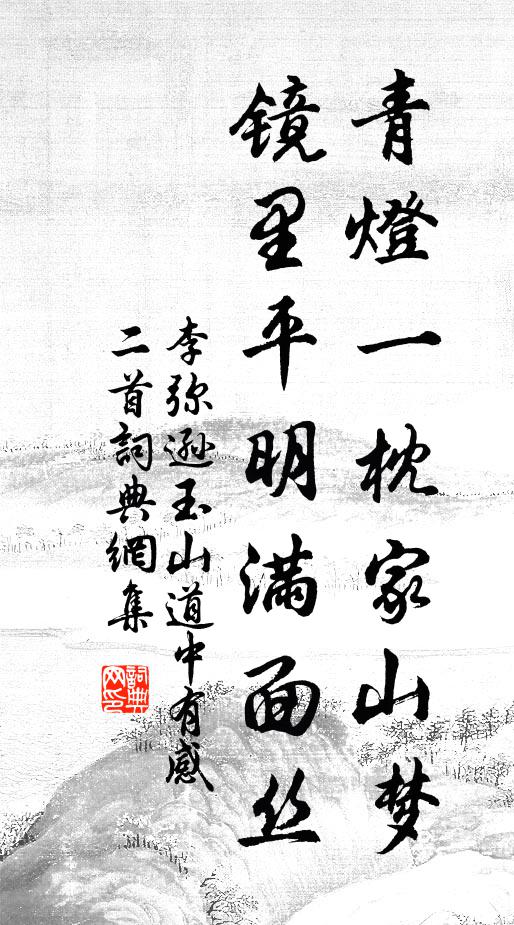 青燈一枕家山梦
镜里平明满面丝
李弥逊玉山道中有感
二首詞典網集
詞典
网印